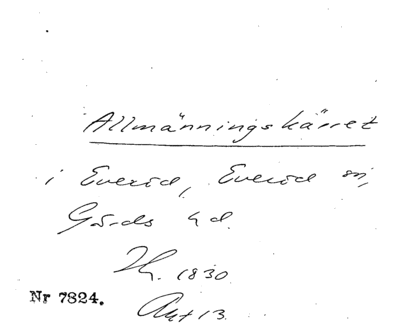 Allmänningskärret
i Everöd, Everöd sn,
Gärds hd.
1830.
Nr 7824.
Akt 13.